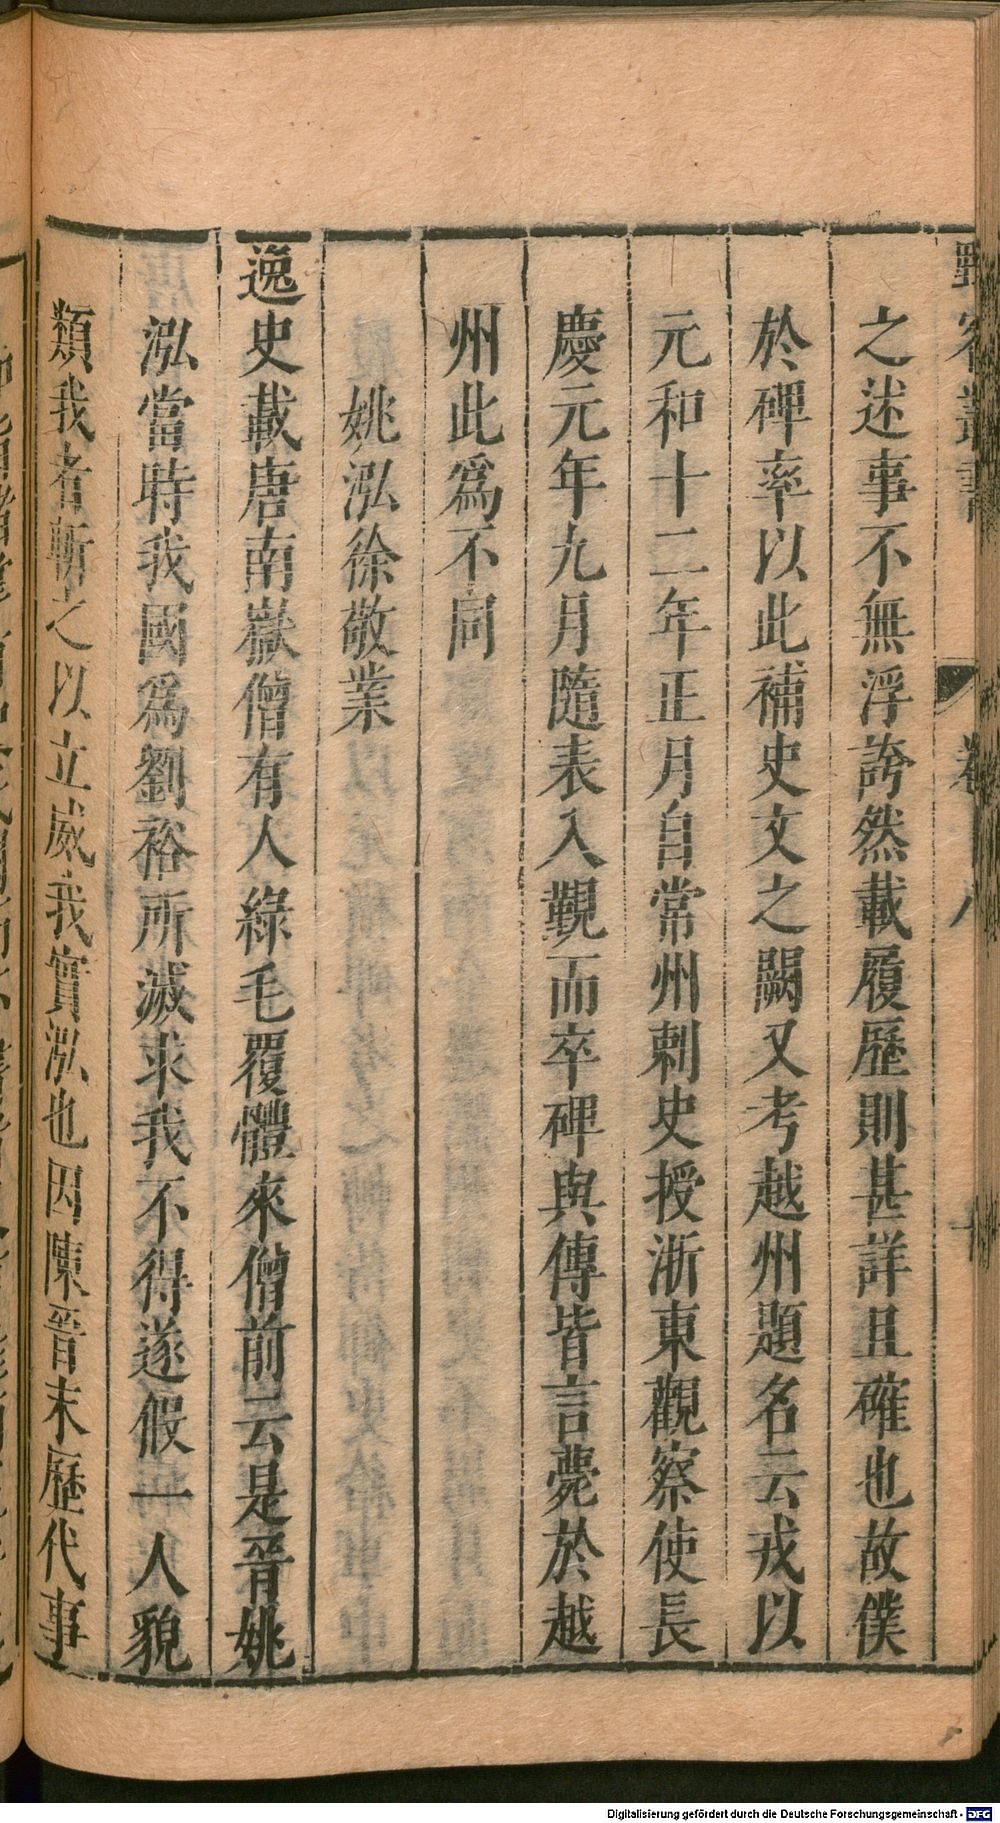 野客叢書 卷八
之述事不無浮誇然載履歷則甚詳且確也故僕
於碑率以此補史文之闕又考越州題名云戎以
元和十二年正月自常州剌史授浙東觀察使長
慶元年九月隨表入覲而卒碑與傳皆言薨於越
州此爲不同
姚泓徐敬業
逸史載唐南嶽僧有人綠毛覆體來僧前云是晉姚
泓當時我國爲劉裕所滅求我不得遂假一人貌
類我者斬之以立威我實泓也因陳晉末歷代事
Digitalisierung gefördert durch die Deutsche Forschungsgemeinschaft - DFG